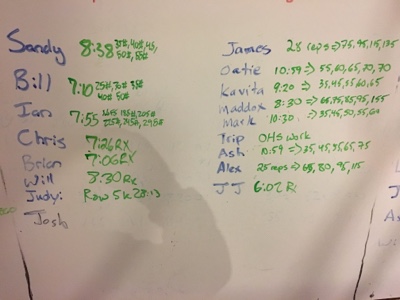 Sandy 8:38 35#, 40#, 45,
50#, 55#
Bill 7:10 25#, 30# 35#
40# 50#
Ian 7:55
Chris 7:26RX
Brian 7:06RX
Will 8:30Rx
Judy: Row 5k 28:13
Josh
James 28 reps => 75, 95, 115, 135
Oatie 10:59 => 55, 60, 65, 70, 70
Kavita 9:20 => 35, 45, 55, 60, 65
Maddox 8:30 => 95, 155
Mark 10:30 => 35, 45, 50, 55, 60
Trip OHS work
Ash 10:59 => 35, 45, 55, 65, 75
Alex 25 reps => 65, 80, 95, 115
JJ 6:02 Rx